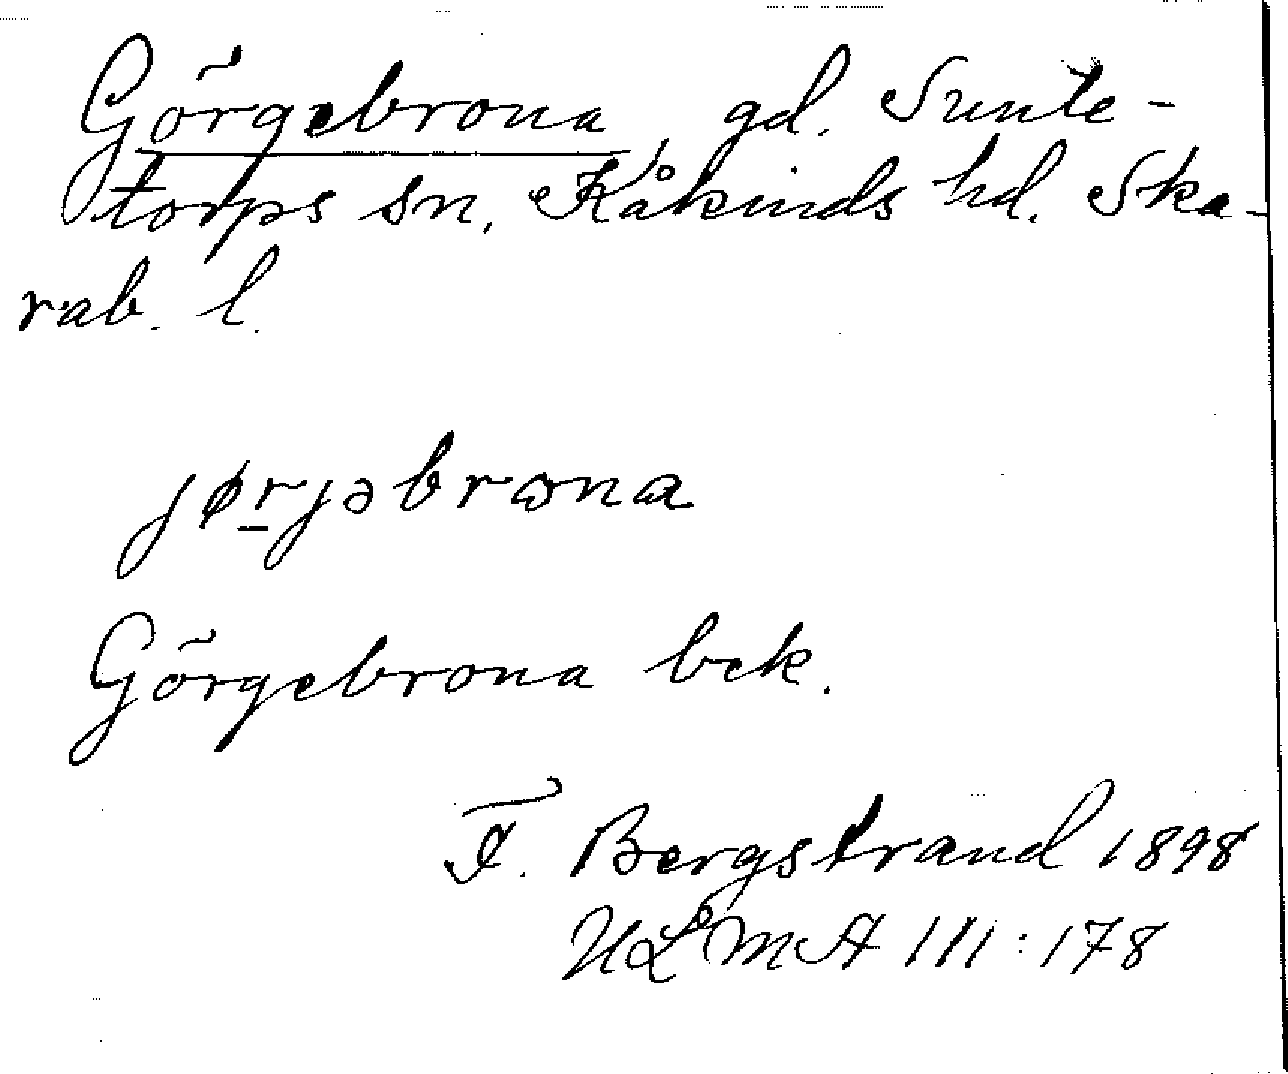 Görgebrona, gd. Sunte-
torps sn, Kåkinds hd. Ska-
rab. l.
jørjəbrωna
Görgebrona bck.
F. Bergstrand 1898
ULMA 111:178